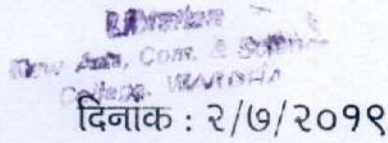 Librarian
New Arts, Com. & Science
College, WARDHA
दिनांक : २/७/२०१९